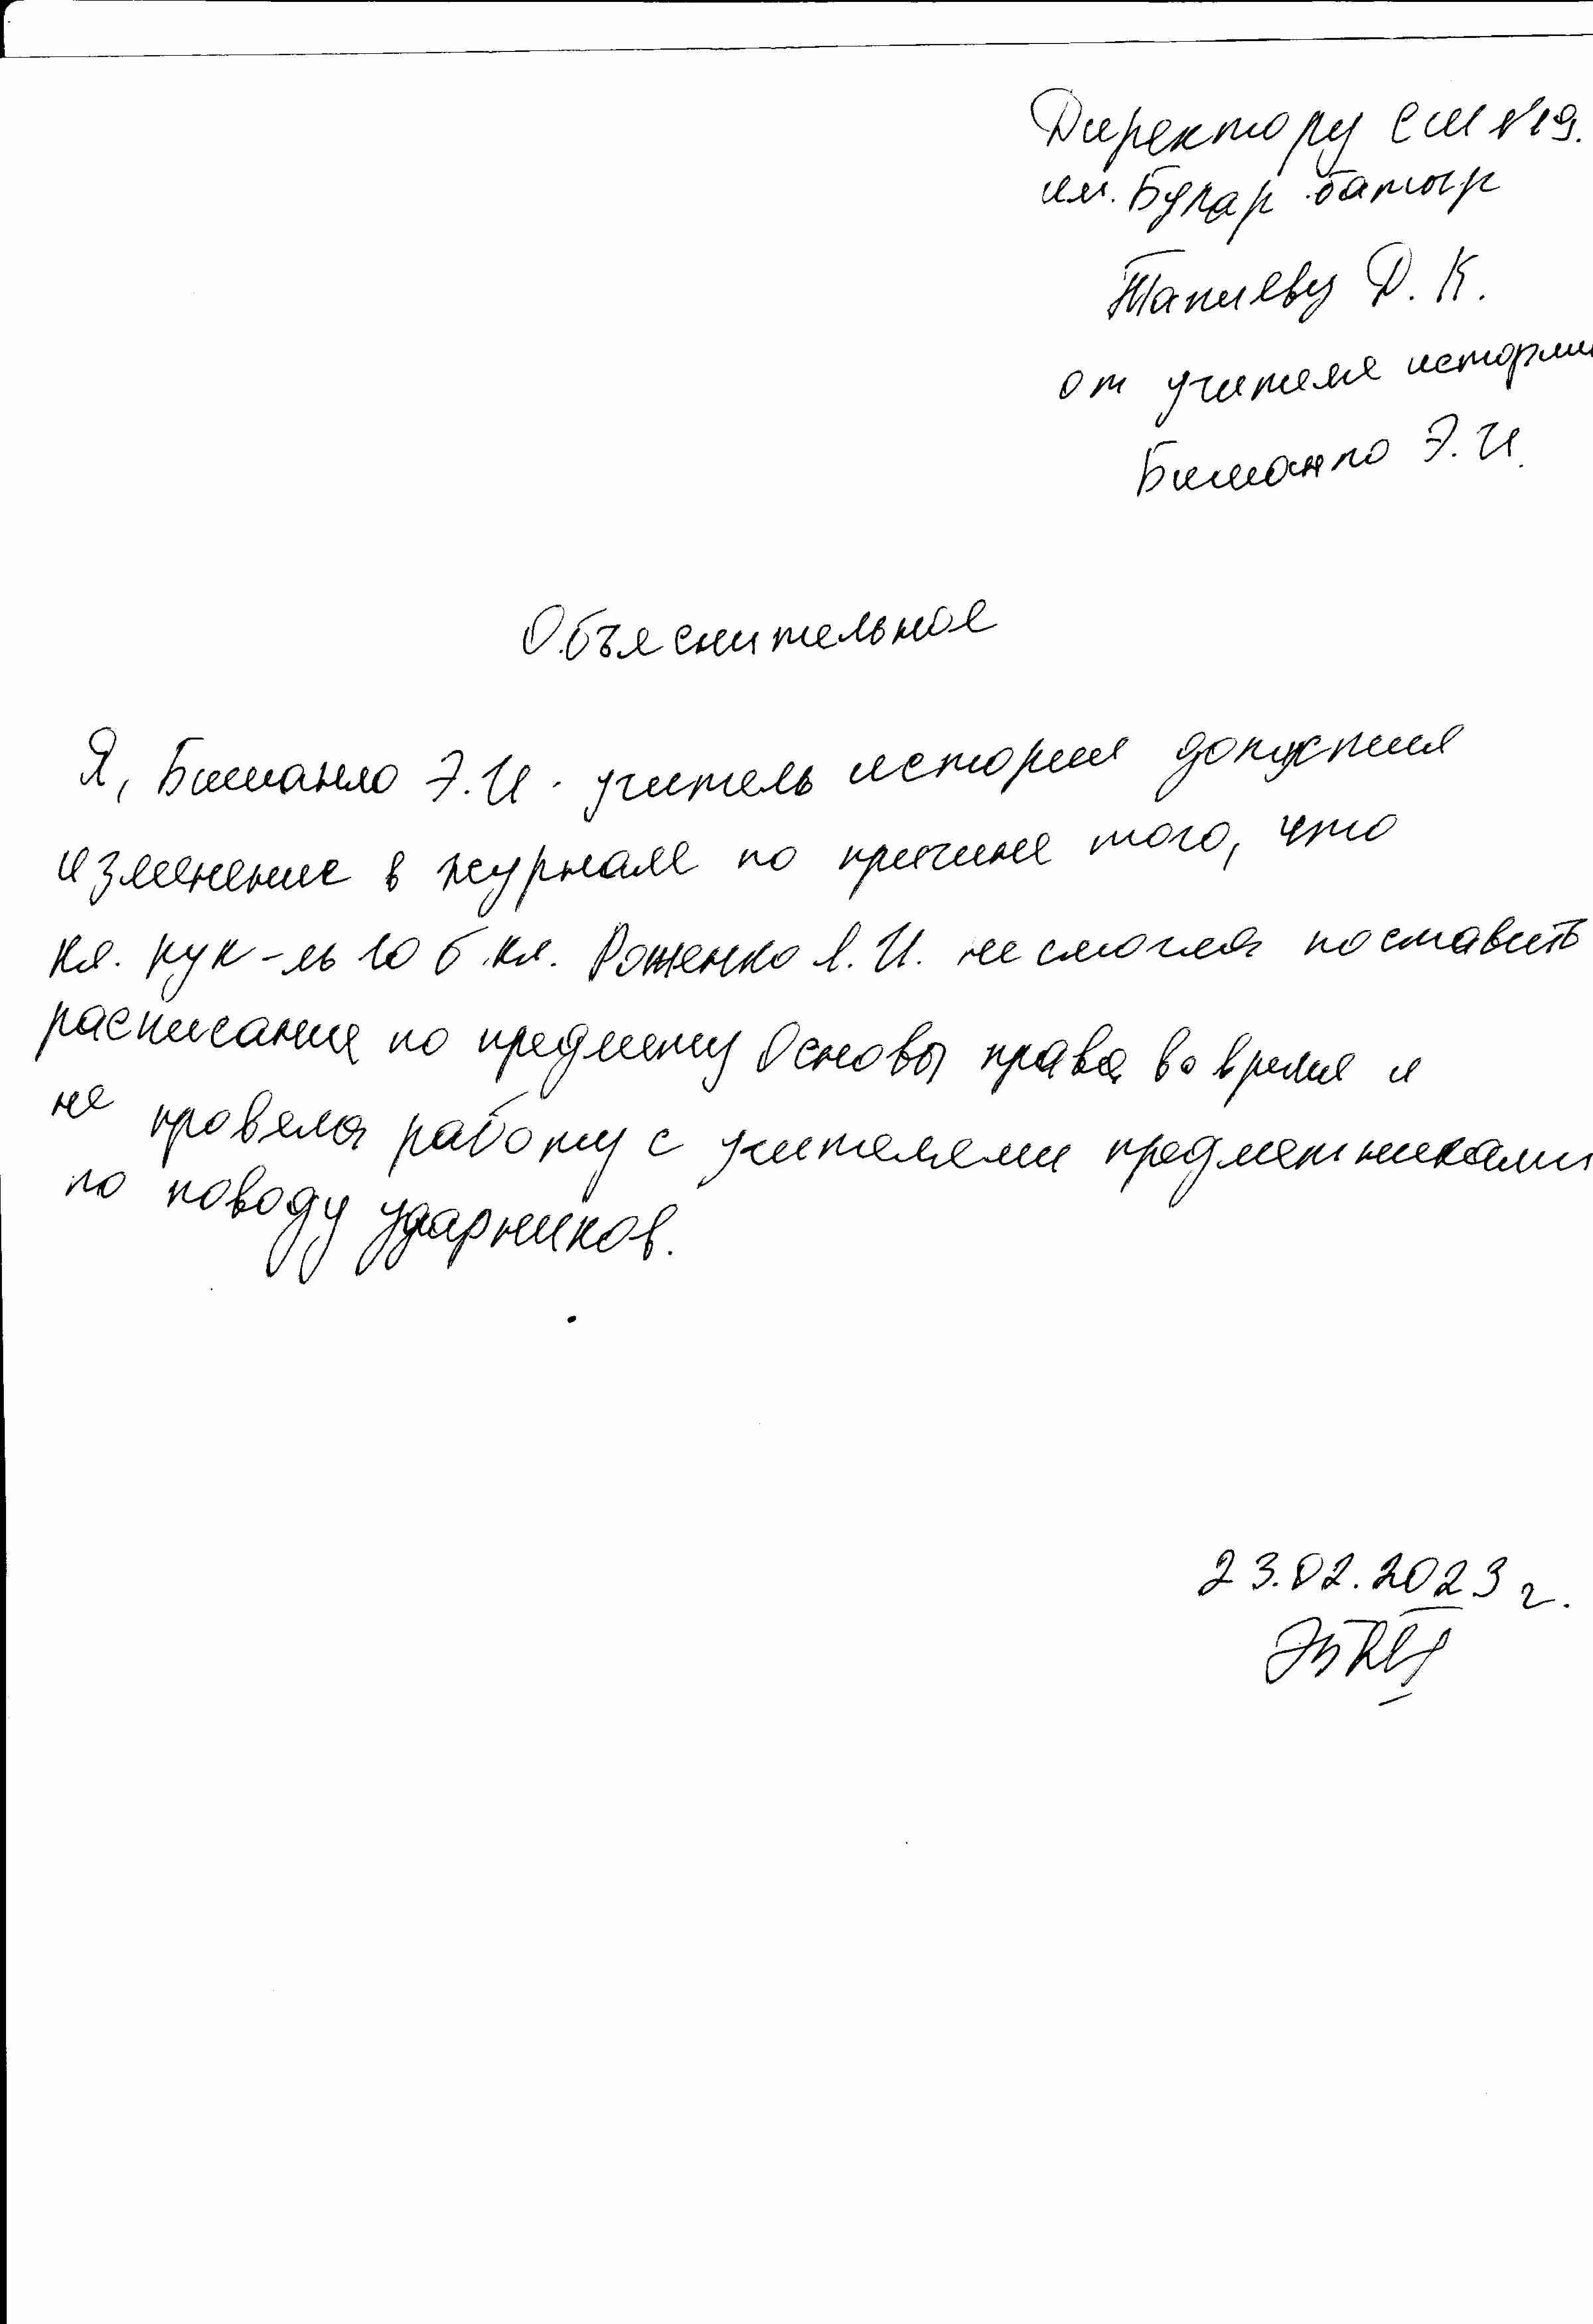 Директору СШ №19.
им. Букар батыр
Тапиеву Д. К.
от учителя истории
Э. И.
Объяснительное
Я, Э. И. учитель истории допустил
изменение в журнале по причине того, что
кл. рук-ль 10 б кл. Роженко Л. И. не смогла поставить
расписания по предмету Основы права во время и
не провела работу с учителями предметниками
по поводу ударников.
23.02.2023 г.